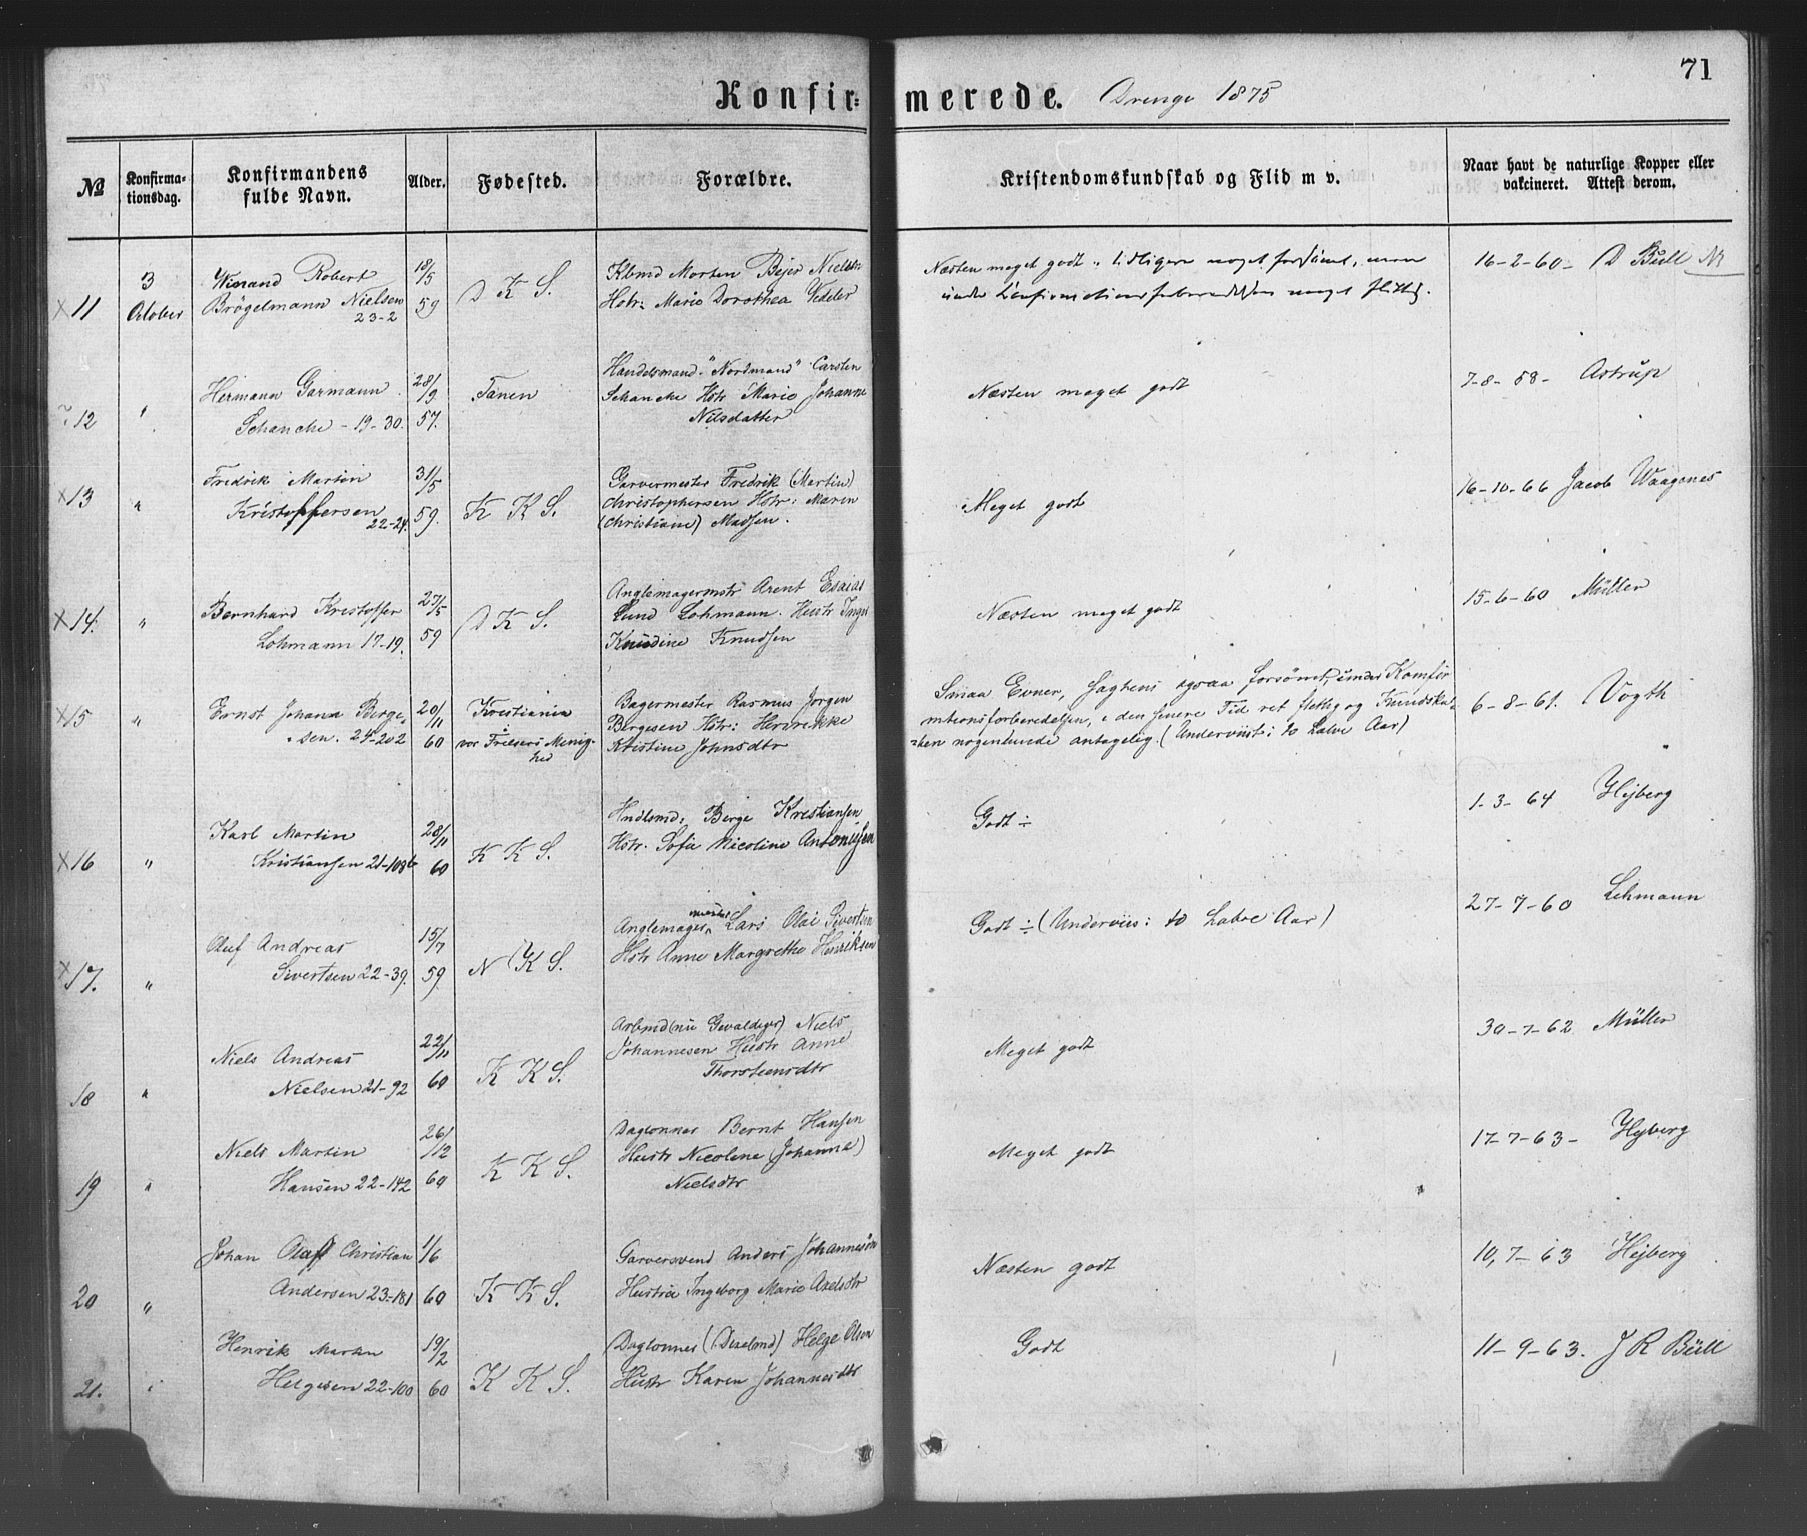 71
Konfirmerede. Drenge 1875
№
Konfirmationsdag.
Konfirmandens fulde Navn.
Alder.
Fødested.
Forældre.
Kristendomskundskab og Flid m v.
Naar havt de naturlige Kopper eller vakcineret. Attest derom.
x 11
3 October
Winand Robert
Brögelmann Nielsen
23-2
18/5 59
D K S.
Kbmd Morten Bejer Nielsen
Hstr: Marie Dorothea Vedeler
Næsten meget godt. tidligere noget forsömt, men
under Confirmationsforberedelsen meget flittig.
16-2-60- D Büll
12
"
Hermann Garmann
Schanche - 19-30.
28/9 57.
Tanen
Handelsmand "Nordmand" Carsten
Schanche Hstr Marie Johanne
Nilsdatter
Næsten meget godt
7-8-58- Astrüp
x 13
"
Fredrik Martin
Kristoffersen
22-24.
31/5 59.
K K S.
Garvermester Fredrik (Martin)
Christophersen Hstr: Maren
(Christiane) Madsen.
Meget godt
16-10-66 Jacob Waagenes
x 14.
"
Bernhard Kristoffer
Lohmann 17-19.
27/5 59
D K S.
Anglemagermstr Arent Esaias
Lund Lohmann. Hustr Inger
Knudine Knudsen
Næsten meget godt
15-6-60 Müller
x 15
"
Ernst Johann Berge-
sen. 24-202
20/11 60
Kristiania
vor Frelsers Menig-
hed
Bagermester Rasmus Jørgen
Bergesen Hstr: Henrikke
Kristine Johnsdtr
Smaa Evner, ogsaa forsömt, under Konfir
mtionsforberedelsen, i den senere Tid ret flittig og Kundska-
ben nogenlunde antagelig. (Underviist: to halve Aar)
6-8-61. Vogth
x 16
"
Karl Martin
Kristiansen 21-108b
28/11 60
K K S.
Hndlsmd: Berge Kristiansen
Hstr. Sofie Nicoline Antonisen
Godt ÷
1-3-64 Hejberg
x 17.
"
Oluf Andreas
Sivertsen 22-39.
15/7 59.
N K S.
Anglemager mester Lars Olai Sivertsen
Hstr Anne Margrethe Henriksen
Godt ÷ (Underviis: to halve Aar)
27-7-60 Lehmann
18
"
Niels Andreas
Nielsen 21-92
22/10 60
K K S.
Arbmd (nu Gevaldiger) Niels
Johannesen Hustr Anne
Thorsteinsdtr
Meget godt
30-7-62 Müller
19
"
Niels Martin
Hansen 22-142
26/12 60
K K S.
Daglønner Bernt Hansen
Hustr Nicolene (Johanne)
Nielsdtr
Meget godt
17-7-63- Hejberg
20
"
Johan Olaf Christian
Andersen 23-181
1/6 60
K K S.
Garversvend Anders Johannesön
Hustru Ingeborg Marie Axelsdtr
Næsten godt
10,7-63 Heiberg
21.
"
Henrik Martin
Helgesen 22-100
19/2 60
K K S.
Daglønner Helge Olsen
Hustr Karen Johannesdtr
Godt
11-9-63. J R Büll